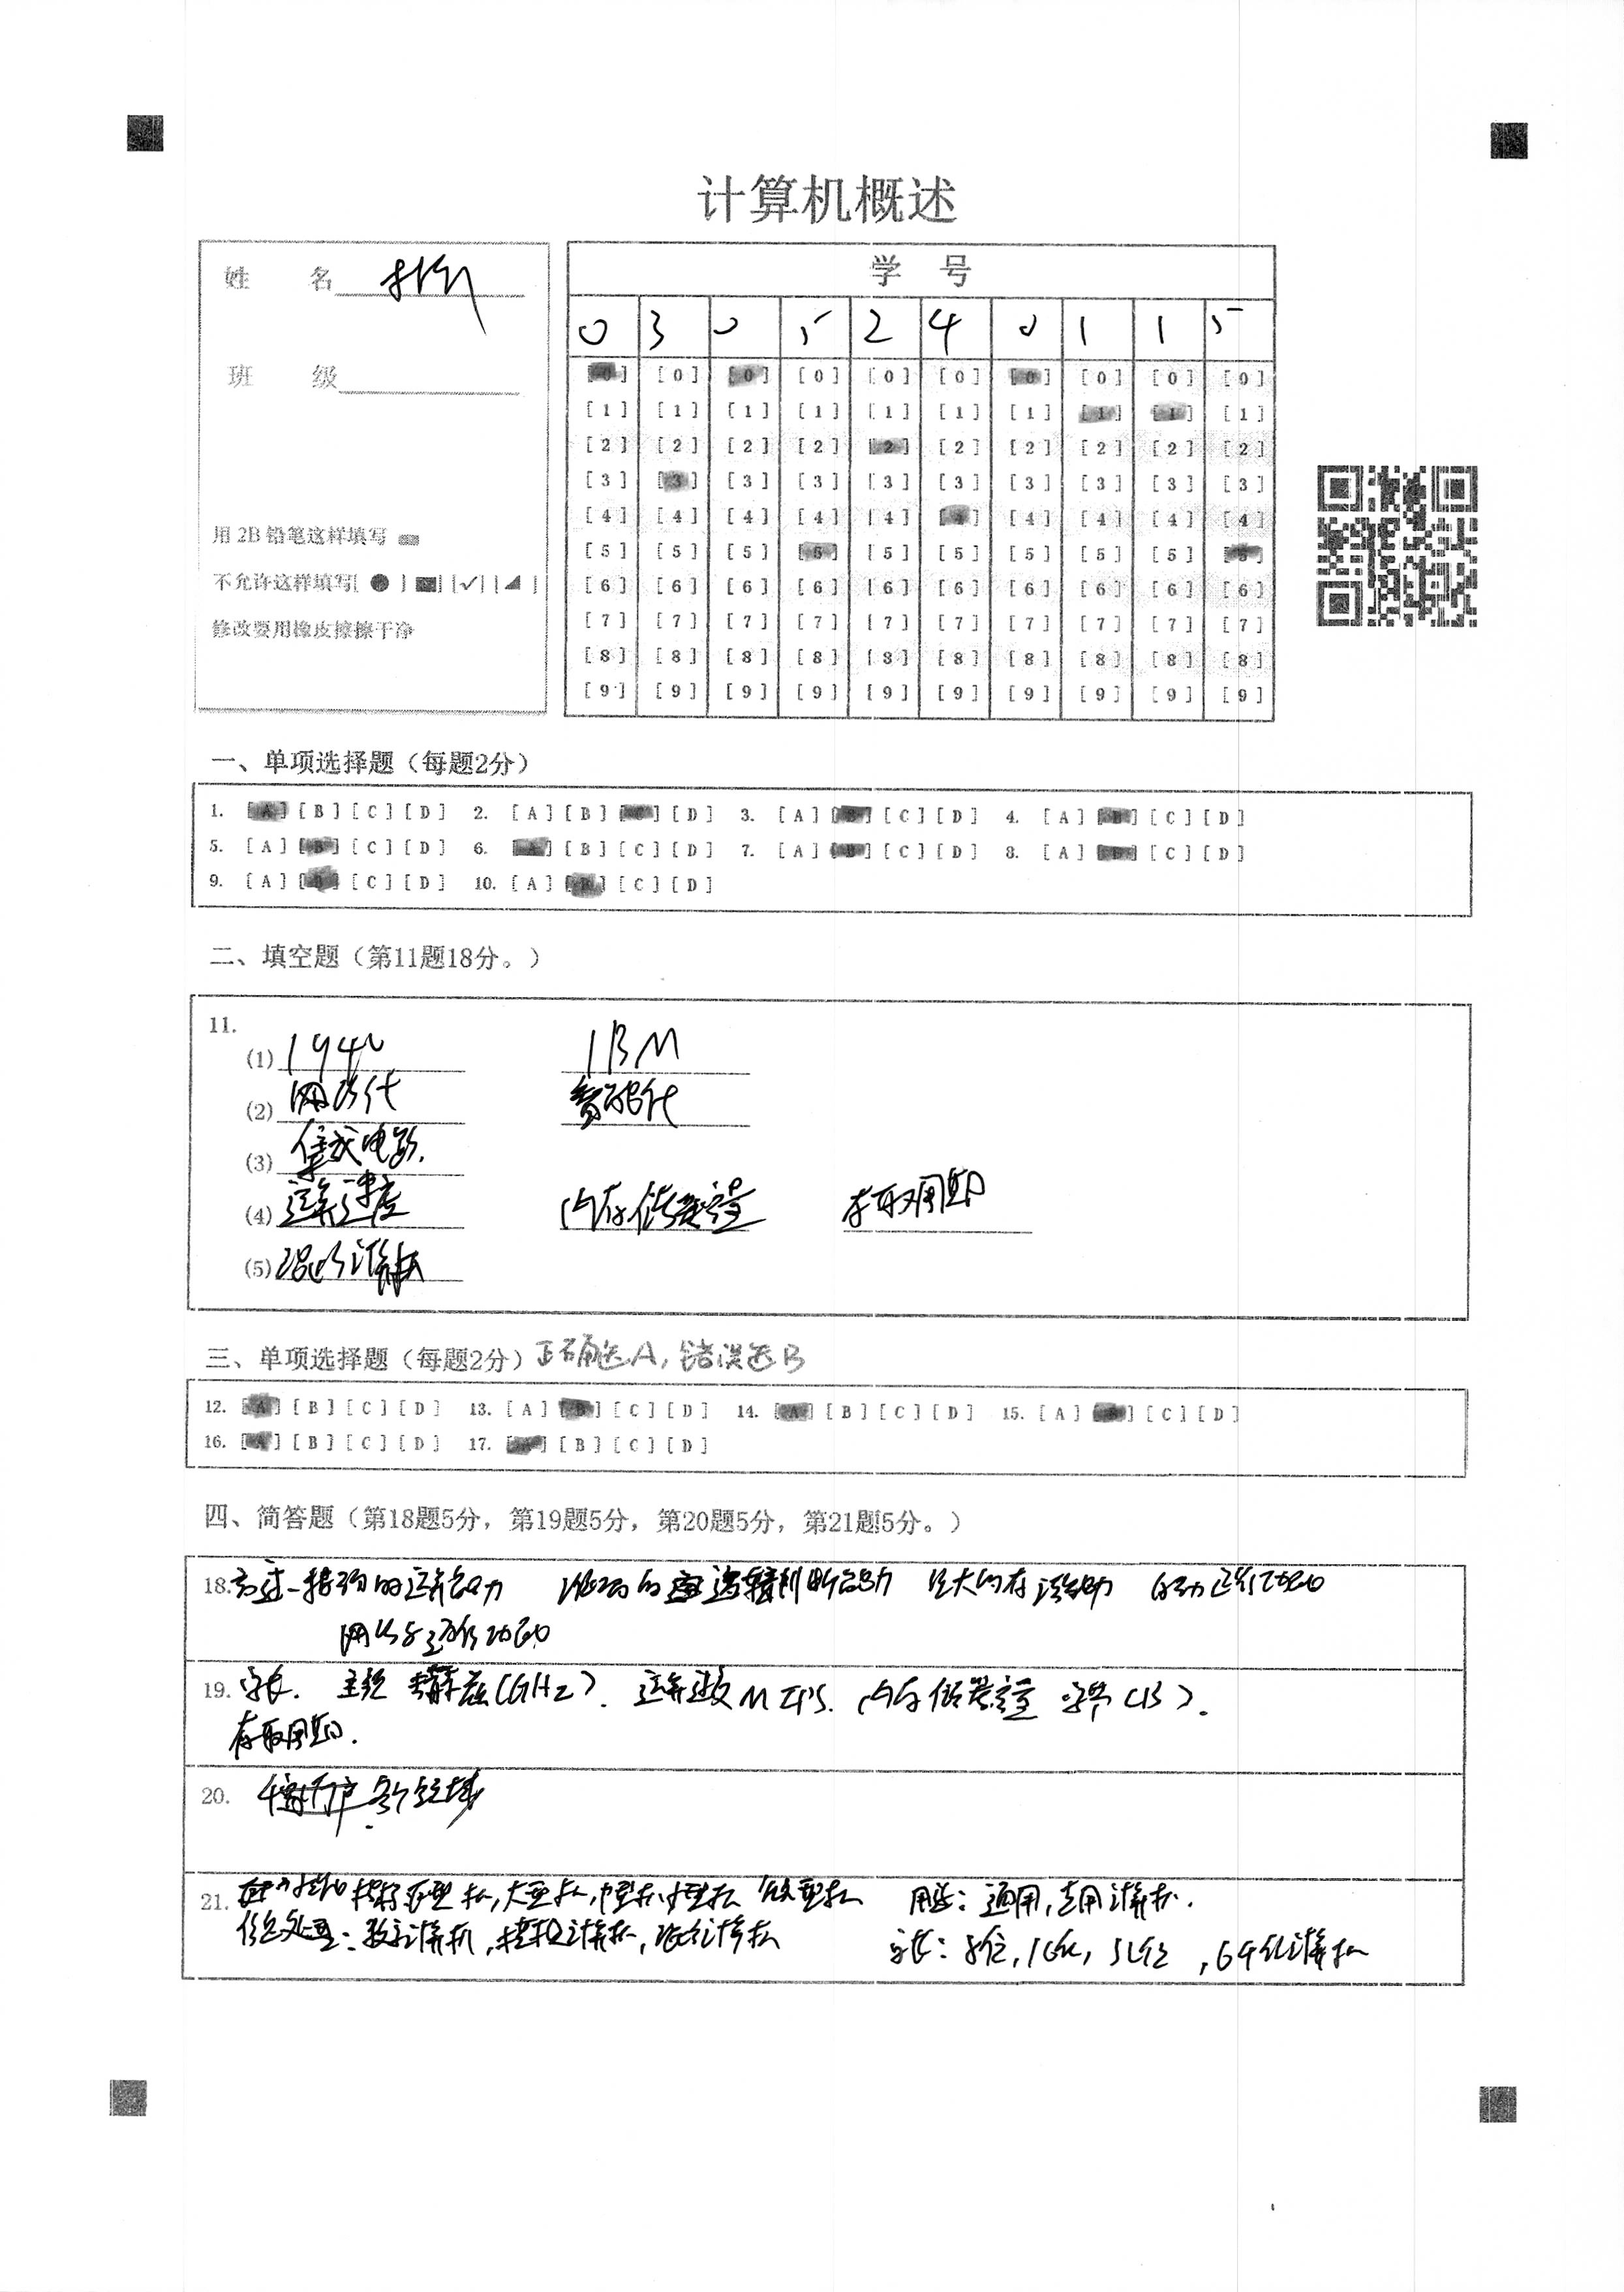 计算机概述
姓 名
班 级
用 2B 铅笔这样填写
不允许这样填写[ ● ] [■] [✓] [◢ ]
修改要用橡皮擦擦干净
学 号
0 3 0 5 2 4 0 1 1 5
[0] [0] [0] [0] [0] [0] [0] [0] [0] [0]
[1] [1] [1] [1] [1] [1] [1] [1] [1] [1]
[2] [2] [2] [2] [2] [2] [2] [2] [2] [2]
[3] [3] [3] [3] [3] [3] [3] [3] [3] [3]
[4] [4] [4] [4] [4] [4] [4] [4] [4] [4]
[5] [5] [5] [5] [5] [5] [5] [5] [5] [5]
[6] [6] [6] [6] [6] [6] [6] [6] [6] [6]
[7] [7] [7] [7] [7] [7] [7] [7] [7] [7]
[8] [8] [8] [8] [8] [8] [8] [8] [8] [8]
[9] [9] [9] [9] [9] [9] [9] [9] [9] [9]
一、单项选择题（每题2分）
1. [A] [B] [C] [D] 2. [A] [B] [C] [D] 3. [A] [B] [C] [D] 4. [A] [B] [C] [D]
5. [A] [B] [C] [D] 6. [A] [B] [C] [D] 7. [A] [B] [C] [D] 8. [A] [B] [C] [D]
9. [A] [B] [C] [D] 10. [A] [B] [C] [D]
二、填空题（第11题18分。）
11.
(1) 194 IBM
(2) 网络代 智能代
(3) 集成电路.
(4) 运算速度 内存储容量 存取周期
(5) 混合计算机
三、单项选择题（每题2分）正确选A, 错误选B
12. [A] [B] [C] [D] 13. [A] [B] [C] [D] 14. [A] [B] [C] [D] 15. [A] [B] [C] [D]
16. [A] [B] [C] [D] 17. [A] [B] [C] [D]
四、简答题（第18题5分，第19题5分，第20题5分，第21题5分。）
18. 的运算能力 逻辑判断能力 强大的存储能力 自动运行功能
网络与通信功能
19. 字长. 主频 赫兹(GHz). 运算速度 MIPS. 内存储容量 字节(B).
存取周期.
20. 各个领域
21. 巨型机, 大型机, 中型机, 小型机 微型机 用途: 通用, 专用计算机.
信息处理: 数字计算机, 模拟计算机, 混合计算机 字长: 8位, 16位, 32位, 64位计算机